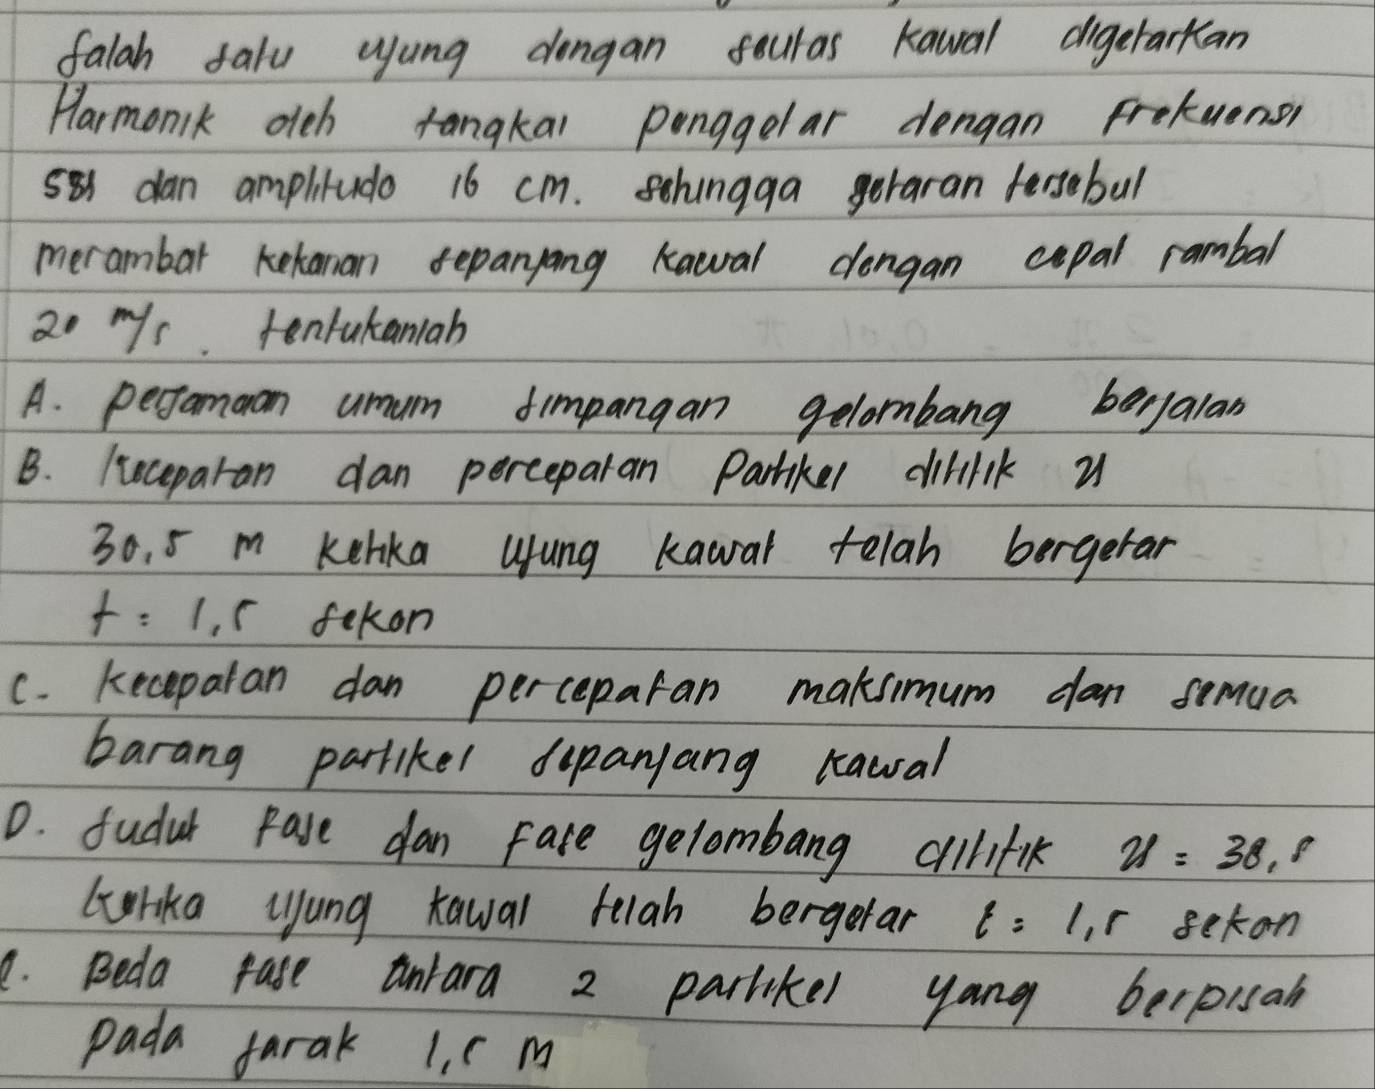 Salah satu ujung dengan seutas kawat digetarkan
Harmonik oleh tangkai penggetar dengan Frekuensi
dan amplitudo 16 cm. sehingga getaran tersebut
merambat kekanan sepanjang kawat dengan cepat rambat
20 m/s. tentukanlah
A. persamaan umum simpangan gelombang berjalan
B. Kecepatan dan percepatan Partikel dititik x
30,5 m ketika ujung kawat telah bergetar
t = 1,5 sekon
C. kecepatan dan percepatan maksimum dan semua
barang partikel sepanjang kawat
D. sudut Fase dan Fase gelombang dititik x = 38,5
ketika ujung kawat telah bergetar t = 1,5 sekon
e. Beda fase antara 2 partikel yang berpisah
pada jarak 1,5 m